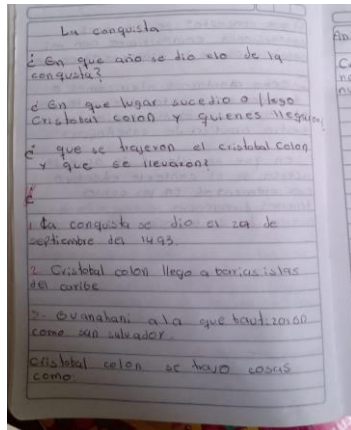 La conquista
¿ En que año se dio elo de la
conquista?
¿ En que lugar sucedio o llego
Cristobal colon y quienes llegaron
¿ que se trajeron el cristobal colon
y que se llevaron?
¿
1. La conquista se dio el 29 de
septiembre del 1493.
2. Cristobal colon llego a barias islas
del caribe
3. Guanahani a la que bautizaron
como san salvador.
cristobal colon se trajo cosas
como.